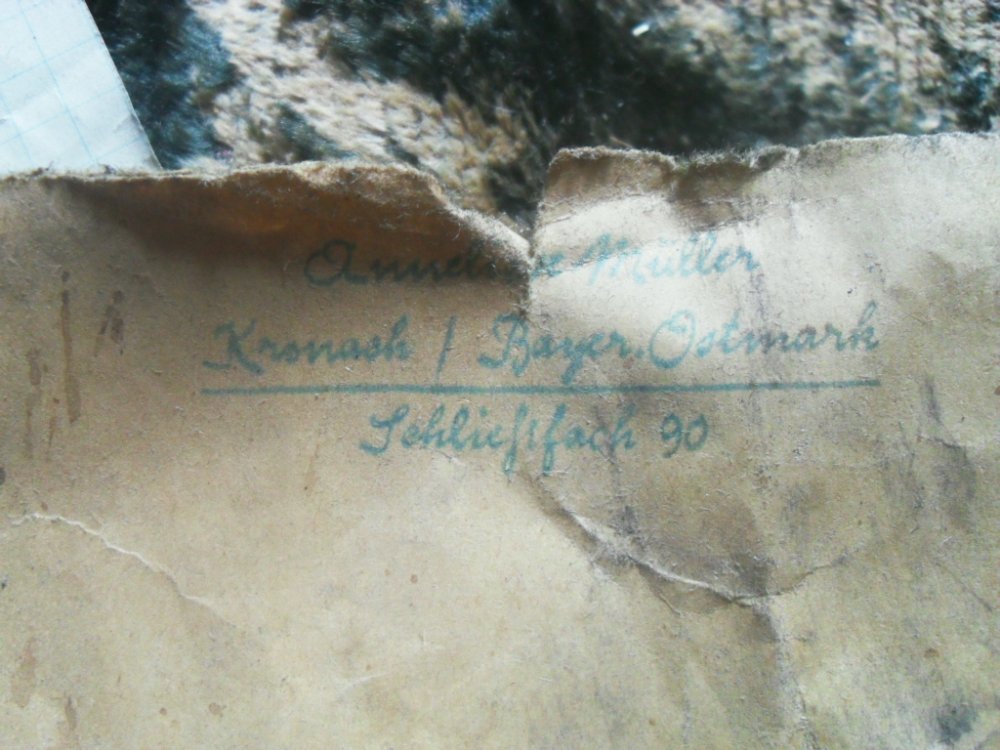 Anneliese Müller
Kronach / Bayer. Ostmark
Schließfach 90